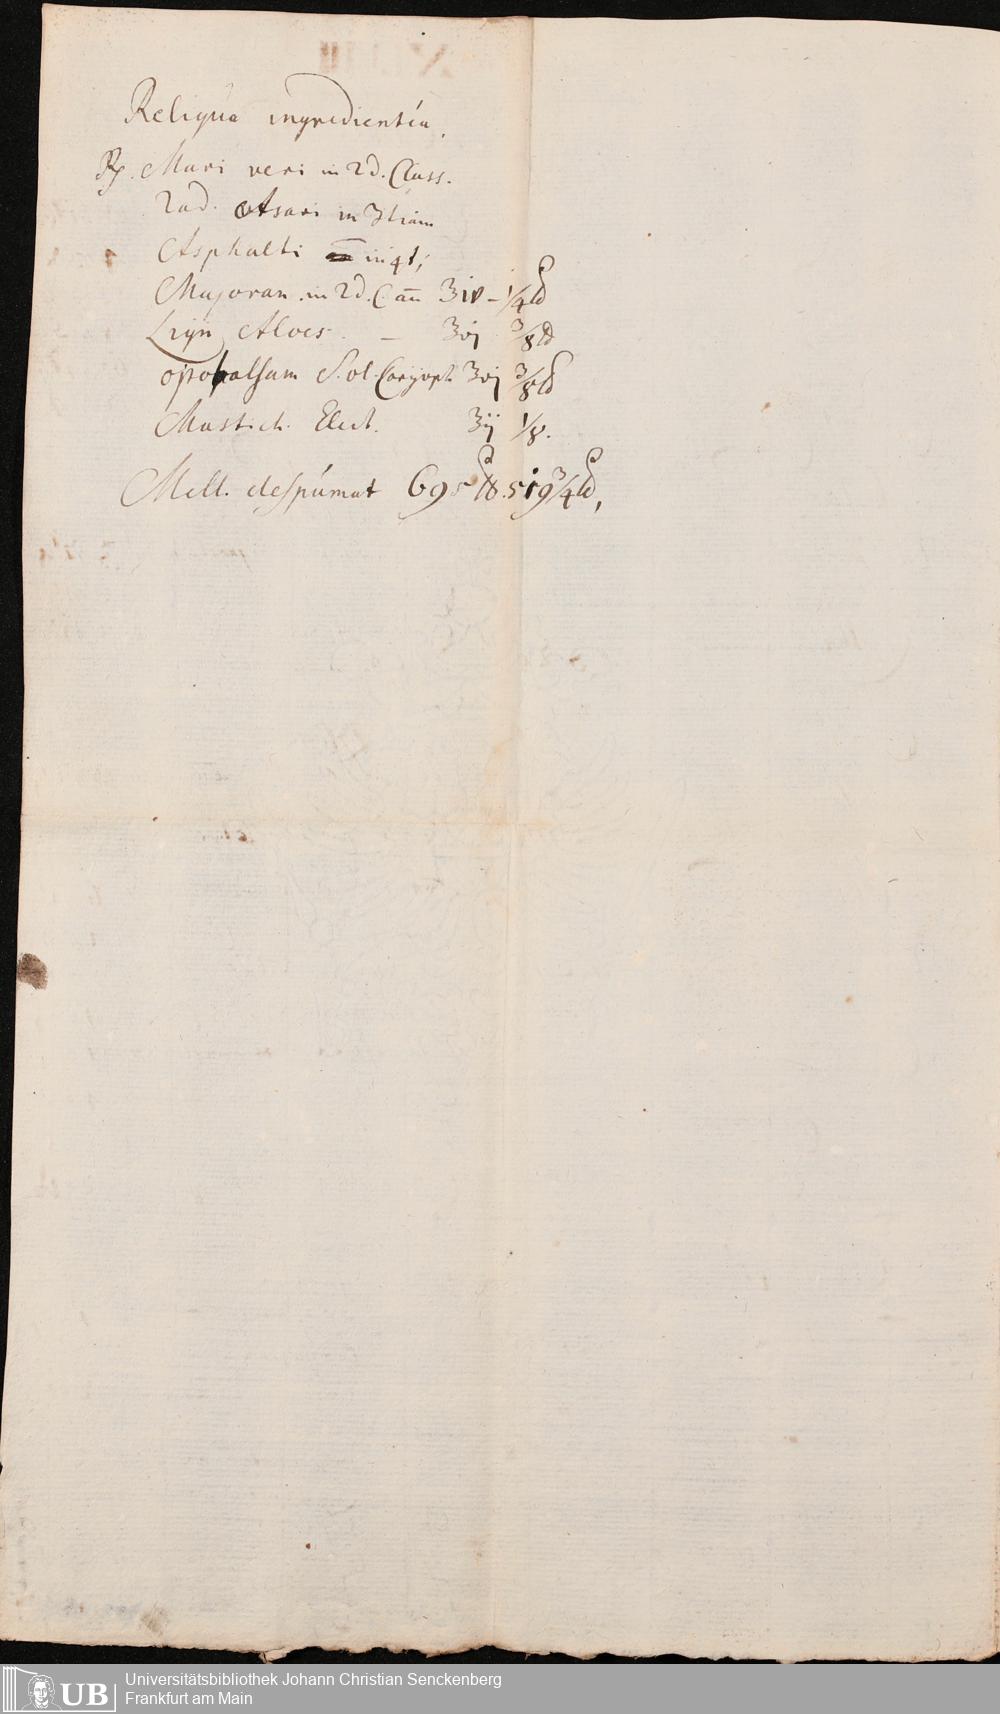 Reliqua ingredientia.
Rp. Mari veri in 2d. Class.
Rad. Asari in 3tiam
Asphalti in 4t;
Majoran. in 2d. C. an̄ ʒiv – 1/4 ℔
Lign Aloes – ʒvj 3/8 ℔
opobalsam S. ol. Caryoph. ʒvj 3/8 ℔
Mastich. Elect. ʒij 1/8.
Mell. despumat 695 ℔. 519 3/4 ℔,
Universitätsbibliothek Johann Christian Senckenberg
Frankfurt am Main
UB